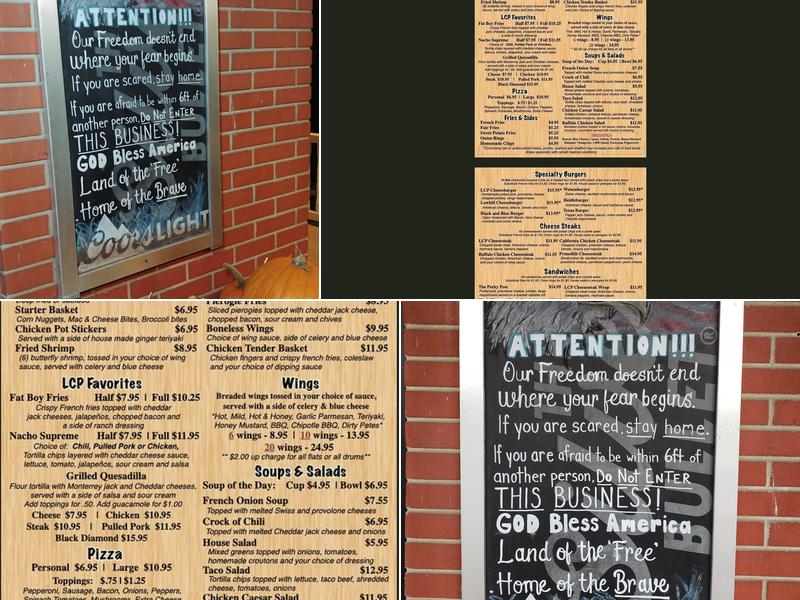 ATTENTION!!!
Our Freedom doesn't end
where your fear begins.
If you are scared, stay home.
If you are afraid to be within 6ft of
another person, Do Not ENTER
THIS BUSINESS!
GOD Bless America
Land of the 'Free'
Home of the Brave
Coors LIGHT
Fried Shrimp $8.95
Chicken Tender Basket $11.95
LCP Favorites
Fat Boy Fries Half $7.95 | Full $10.25
Nacho Supreme Half $7.95 | Full $11.95
Grilled Quesadilla
Cheese $7.95 | Chicken $10.95
Steak $10.95 | Pulled Pork $11.95
Black Diamond $15.95
Pizza
Personal $6.95 | Large $10.95
Toppings: $.75 | $1.25
Fries & Sides
French Fries $4.95
Fair Fries $5.25
Sweet Potato Fries $5.25
Onion Rings $5.95
Homemade Chips $4.95
Wings
Soups & Salads
Soup of the Day: Cup $4.95 | Bowl $6.95
French Onion Soup $7.55
Crock of Chili $6.95
House Salad $5.95
Taco Salad $12.95
Chicken Caesar Salad $11.95
Buffalo Chicken Salad $11.95
Specialty Burgers
LCP Cheeseburger
Lowhill Cheeseburger
Black and Blue Burger
Weisenburger
Heidelburger
Texas Burger
Cheese Steaks
LCP Cheesesteak $11.95
Chicken Cheesesteak
California Chicken Cheesesteak $11.95
PrimeRib Cheesesteak $14.95
Sandwiches
The Porky Post $14.95
LCP Cheesesteak Wrap $11.95
Starter Basket $6.95
Corn Nuggets, Mac & Cheese Bites, Broccoli bites
Chicken Pot Stickers $6.95
Served with a side of house made ginger teriyaki
Fried Shrimp $8.95
(6) butterfly shrimp, tossed in your choice of wing
sauce, served with celery and blue cheese
LCP Favorites
Fat Boy Fries Half $7.95 | Full $10.25
Crispy French fries topped with cheddar
jack cheeses, jalapeños, chopped bacon and
a side of ranch dressing
Nacho Supreme Half $7.95 | Full $11.95
Choice of: Chili, Pulled Pork or Chicken,
Tortilla chips layered with cheddar cheese sauce,
lettuce, tomato, jalapeños, sour cream and salsa
Grilled Quesadilla
Flour tortilla with Monterrey jack and Cheddar cheeses,
served with a side of salsa and sour cream
Add toppings for .50. Add guacamole for $1.00
Cheese $7.95 | Chicken $10.95
Steak $10.95 | Pulled Pork $11.95
Black Diamond $15.95
Pizza
Personal $6.95 | Large $10.95
Toppings: $.75 | $1.25
Pepperoni, Sausage, Bacon, Onions, Peppers,
Spinach, Tomatoes, Mushrooms, Extra Cheese
Pierogie Fries $8.95
Sliced pierogies topped with cheddar jack cheese,
chopped bacon, sour cream and chives
Boneless Wings $9.95
Choice of wing sauce, side of celery and blue cheese
Chicken Tender Basket $11.95
Chicken fingers and crispy french fries, coleslaw
and your choice of dipping sauce
Wings
Breaded wings tossed in your choice of sauce,
served with a side of celery & blue cheese
*Hot, Mild, Hot & Honey, Garlic Parmesan, Teriyaki,
Honey Mustard, BBQ, Chipotle BBQ, Dirty Petes*
6 wings - 8.95 | 10 wings - 13.95
20 wings - 24.95
** $2.00 up charge for all flats or all drums**
Soups & Salads
Soup of the Day: Cup $4.95 | Bowl $6.95
French Onion Soup $7.55
Topped with melted Swiss and provolone cheeses
Crock of Chili $6.95
Topped with melted Cheddar jack cheese and onions
House Salad $5.95
Mixed greens topped with onions, tomatoes,
homemade croutons and your choice of dressing
Taco Salad $12.95
Tortilla chips topped with lettuce, taco beef, shredded
cheese, tomatoes, onions
Chicken Caesar Salad $11.95
ATTENTION!!!
Our Freedom doesn't end
where your fear begins.
If you are scared, stay home.
If you are afraid to be within 6ft of
another person, Do Not ENTER
THIS BUSINESS!
GOD Bless America
Land of the 'Free'
Home of the Brave